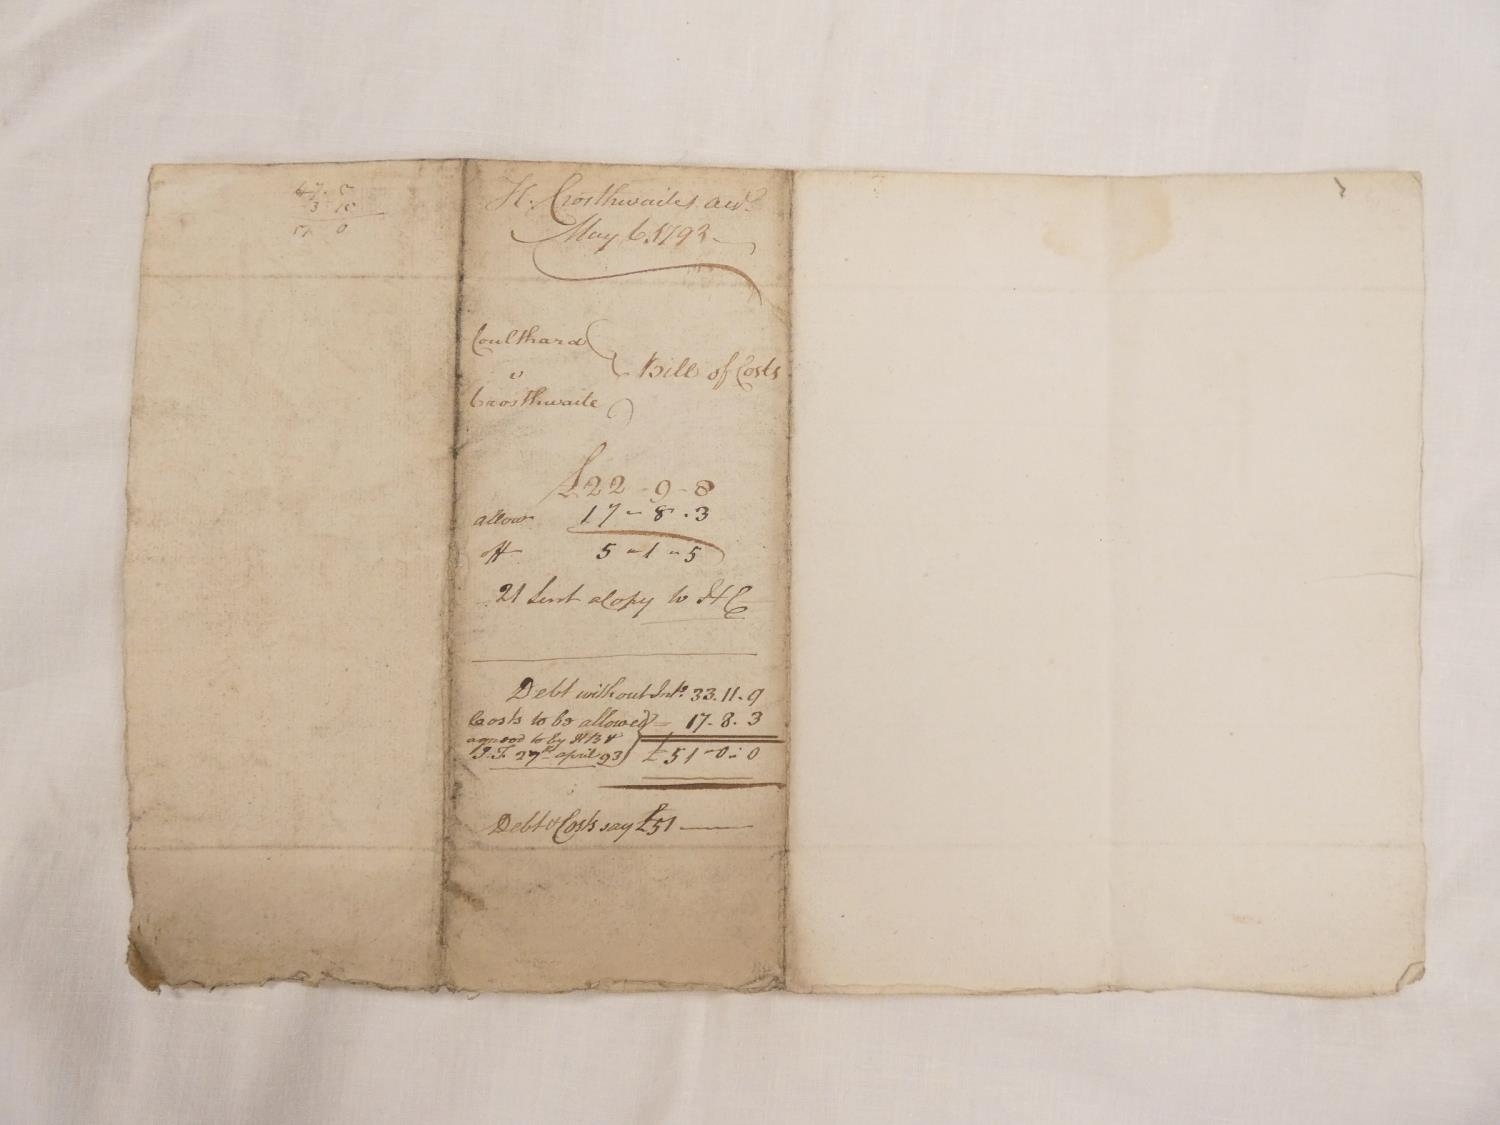 47. 5
3 15
51 0
H. Crosthwaites acct.
May 6. 1793
Coulthard
v
Crosthwaite
Bill of Costs
£22 - 9 - 8
allow 17 - 8 . 3
off 5 - 1 - 5
21 Sent a Copy to H C
Debt without Intt. 33. 11. 9
Costs to be allowed 17. 8. 3
agreed to by &
J.T. 27th april 93 £51 - 0 : 0
Debt & Costs say £51